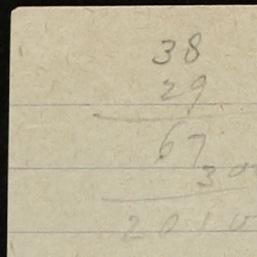 38
29
67
30
2010